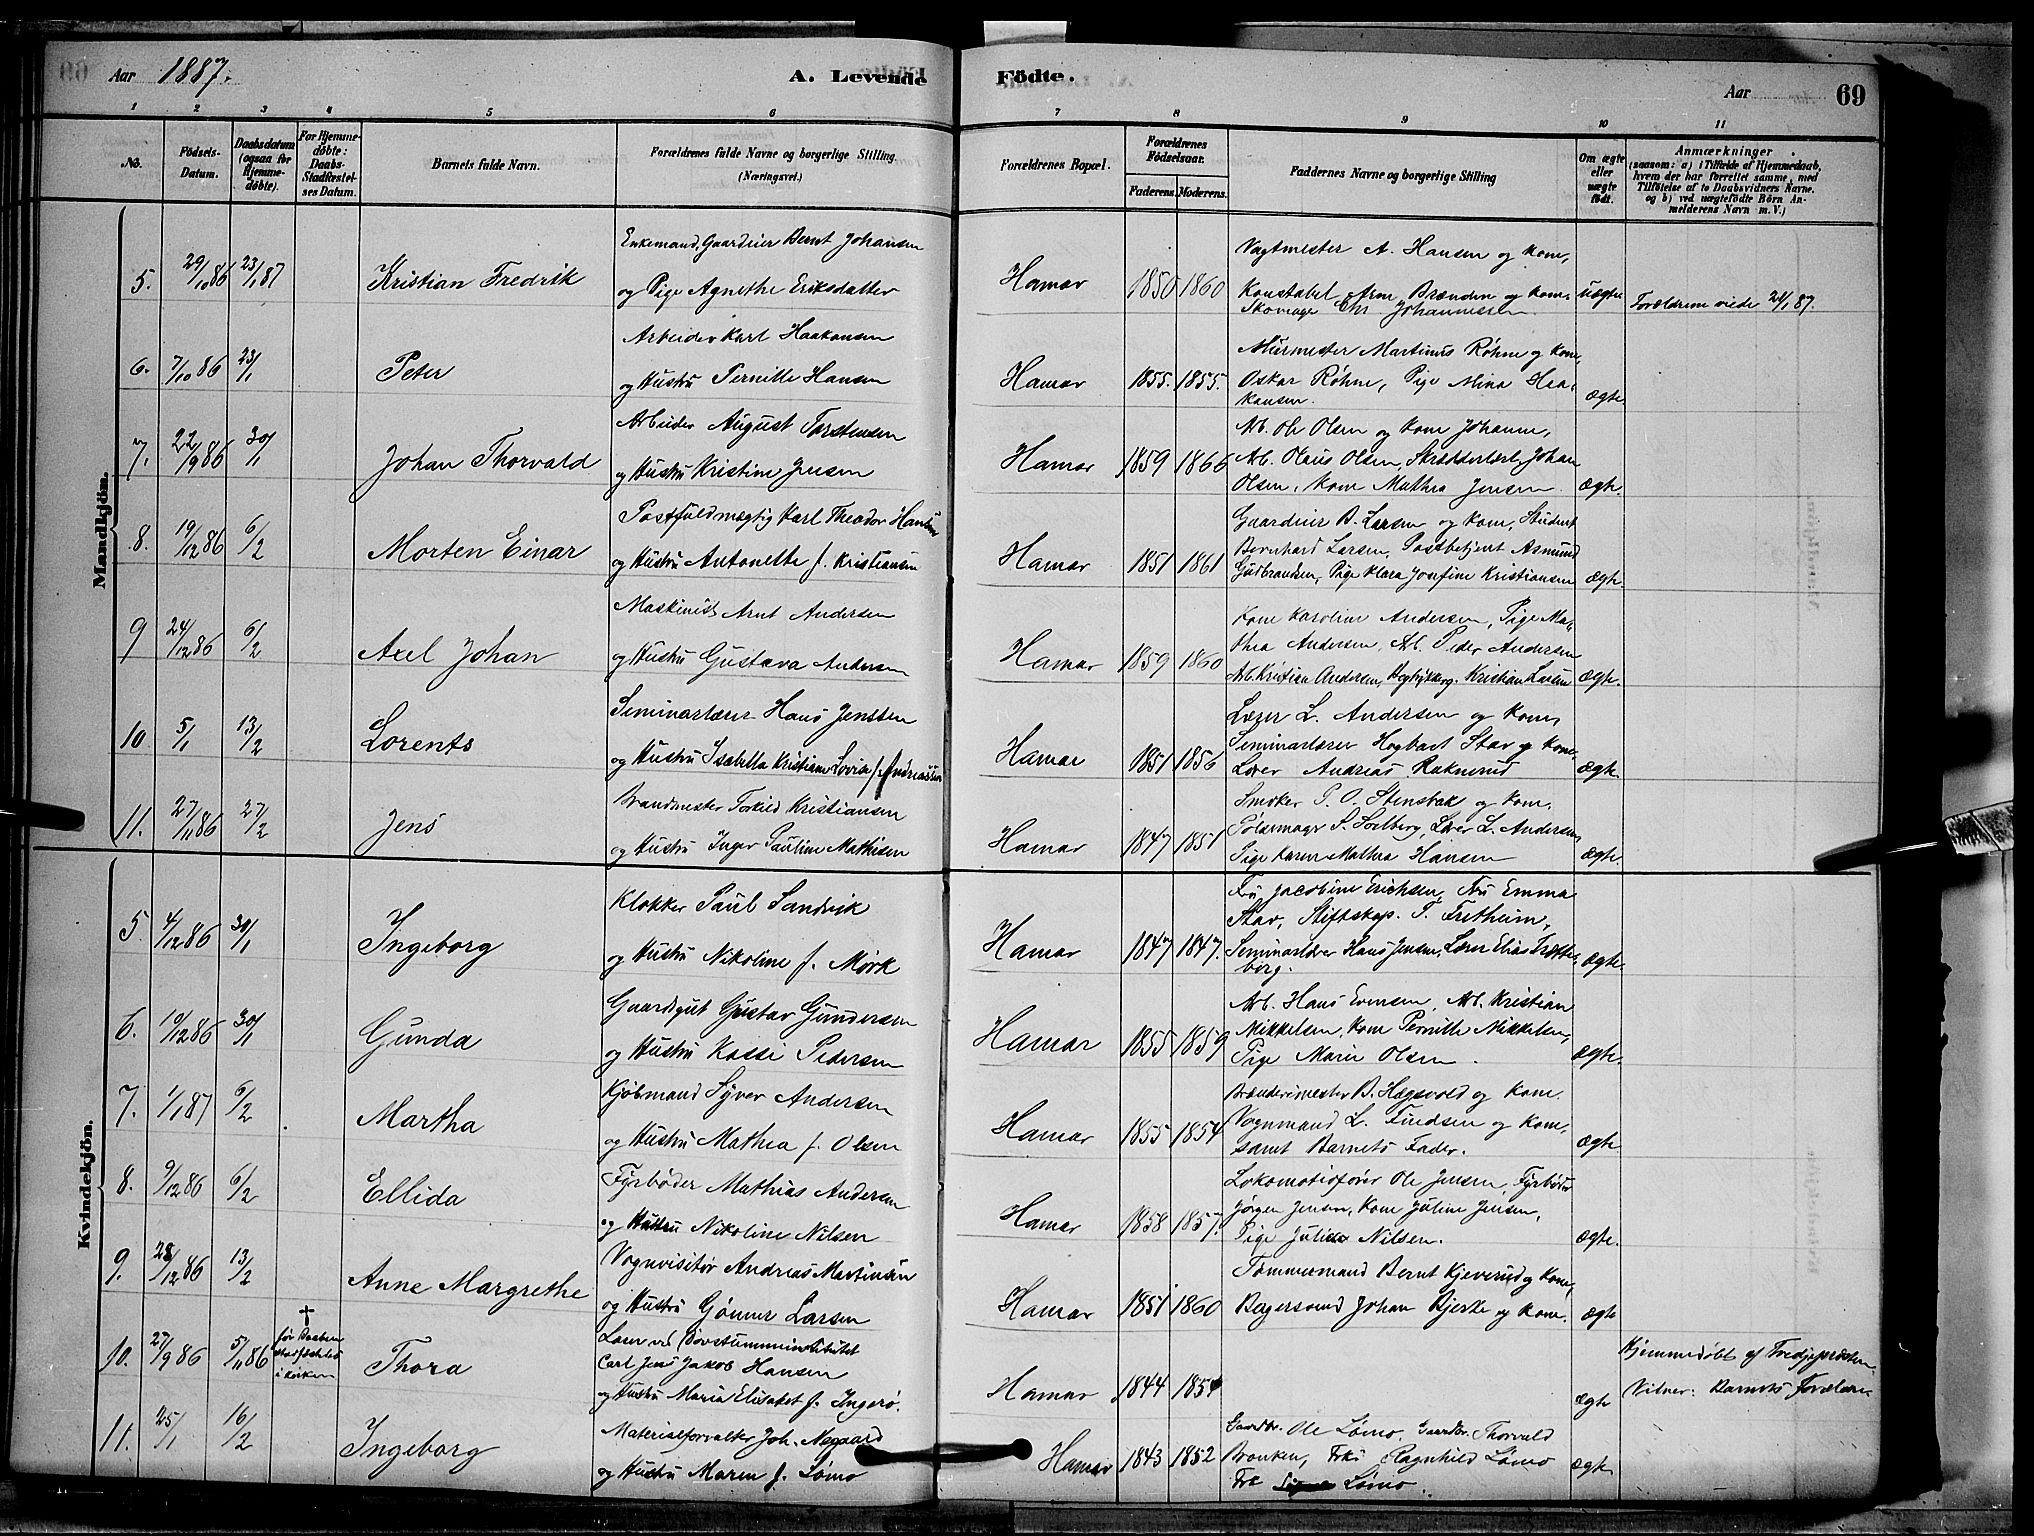 Aar 1887. A. Levende Födte. Aar 69
1 2 3 4 5 6 7 8 9 10 11
No. Födsels-Datum. Daabsdatum (ogsaa for Hjemme-døbte). For Hjemme-døbte: Daabs-Stadfæstel-ses Datum. Barnets fulde Navn. Forældrenes fulde Navne og borgerlige Stilling. (Næringsvei.) Forældrenes Bopæl. Forældrenes Fødselsaar. Faderens. Moderens. Faddernes Navne og borgerlige Stilling Om ægte eller uægte født. Anmærkninger (saasom: a) i Tilfælde af Hjemmedaab, hvem der har forrettet samme, med Tilföielse af to Daabsvidners Navne. og b) ved uægtefødte Börn An-melderens Navn m. V.)
Mandkjön.
5. 29/10 86 23/1 87 Kristian Fredrik Enkemand, Gaardeier Bernt Johansen
og Pige Agnethe Eriksdatter Hamar 1850 1860 Vagtmester A. Hansen og Kone,
Konstabel Arne Brænden og Kone uægte Forældrene viede 28/1 87.
Skomager Chr Johannessen
6. 7/10 86 23/1 Peter Arbeider Karl Haakansen
og Hustru Pernille Hansen Hamar 1855. 1855. Murmester Martinus Røhne og Kone,
Oskar Røhne, Pige Mina Haa-
kansen. ægte
7. 22/9 86 30/1 Johan Thorvald Arbeider August Torstensen
og Hustru Kristine Jensen Hamar 1859 1866 Arb. Ole Olsen og Kone Johanne,
Arb. Olaus Olsen, Skrædderlærl. Johan
Olsen, Kone Mathea Jensen ægte.
8. 19/12 86 6/2 Morten Einar Postfuldmægtig Karl Theodor Hansen
og Hustru Antonette f. Kristiansen Hamar 1851 1861 Gaardeier B. Larsen og Kone, Student
Bernhard Larsen, Postbetjent Asmund
Gudbrandsen, Pige Klara Josefine Kristiansen ægte
9 24/12 86 6/2 Axel Johan Maskinist Arnt Andersen
og Hustru Gustava Andersen Hamar 1859 1860 Kone Karoline Andersen, Pige Ma-
thea Andersen, Arb. Peder Andersen
Arb. Kristian Andersen, Kristian Larsen ægte.
10 5/1 13/2 Lorents Seminarlærer Hans Jenssen
og Hustru Isabella Kristiane Lovise f. Andreassen Hamar 1851 1856 Lærer L. Andersen og Kone,
Seminarlærer Hogbart Stav og Kone,
Lærer Andreas Raknerud ægte.
11. 27/11 86 27/2 Jens Brandmester Torkild Kristiansen
og Hustru Inger Pauline Mathisen Hamar 1847 1851 Smøker P. O. Stensbak og Kone,
Pølsemager S. Solberg, Lærer L. Andersen,
Pige Karen Mathea Hansen ægte.
Kvindekjön.
5. 4/12 86 30/1 Ingeborg Klokker Paul Sandvik
og Hustru Nikoline f. Mørk Hamar 1847 1847. Fru Jacobine Erichsen, Fru Emma
Stav, Stiftskap. T. Fretheim,
Seminarlærer Hans Jensen, Lærer Elias Trætte-
berg. ægte
6. 10/12 86 30/1 Gunda Gaardsgut Gustav Gundersen
og Hustru Kassi Pedersen Hamar 1855 1859 Arb. Hans Evensen, Arb. Kristian
Mikkelsen, Kone Pernille Mikkelsen,
Pige Marie Olsen. ægte.
7. 1/1 87 6/2 Martha Kjøbmand Syver Andersen
og Hustru Mathea f. Olsen Hamar 1855 1854 Brænderimester B. Hagsvold og Kone,
Vognmand L. Findsen og Kone,
samt Barnets Fader. ægte
8. 9/12 86 6/2 Ellida Fyrbøder Mathias Andersen
og Hustru Nikoline Nilsen Hamar 1858 1857. Lokomotivfører Ole Jensen, Fyrbøder
Jørgen Jensen, Kone Juline Jensen,
Pige Julie Nilsen. ægte.
9. 28/12 86 13/2 Anne Margrethe Vognvisitør Andreas Martinsen
og Hustru Gønner Larsen Hamar 1851 1860 Tømmermand Bernt Kjeverud og Kone,
Bagersvend Johan Bjerke og Kone. ægte
10. 27/9 86 5/11 86 † før Daaben stadfæstedes i Kirken Thora Lærer ved Døvstummeinstitutet
Carl Jens Jakob Hansen
og Hustru Maria Elisabet f. Ingerø. Hamar 1844 1854 ægte Hjemmedøbt af Tredjepræsten
Vitner: Barnets Forældre
11. 25/1 16/2 Ingeborg Materialforvalter Joh. Aagaard
og Hustru Maren f. Lømo Hamar 1843 1852 Gaardbr. Ole Lømo, Gaardbr. Thorvald
Bronken, Frk. Ragnhild Lømo
Frk Lømo. ægte